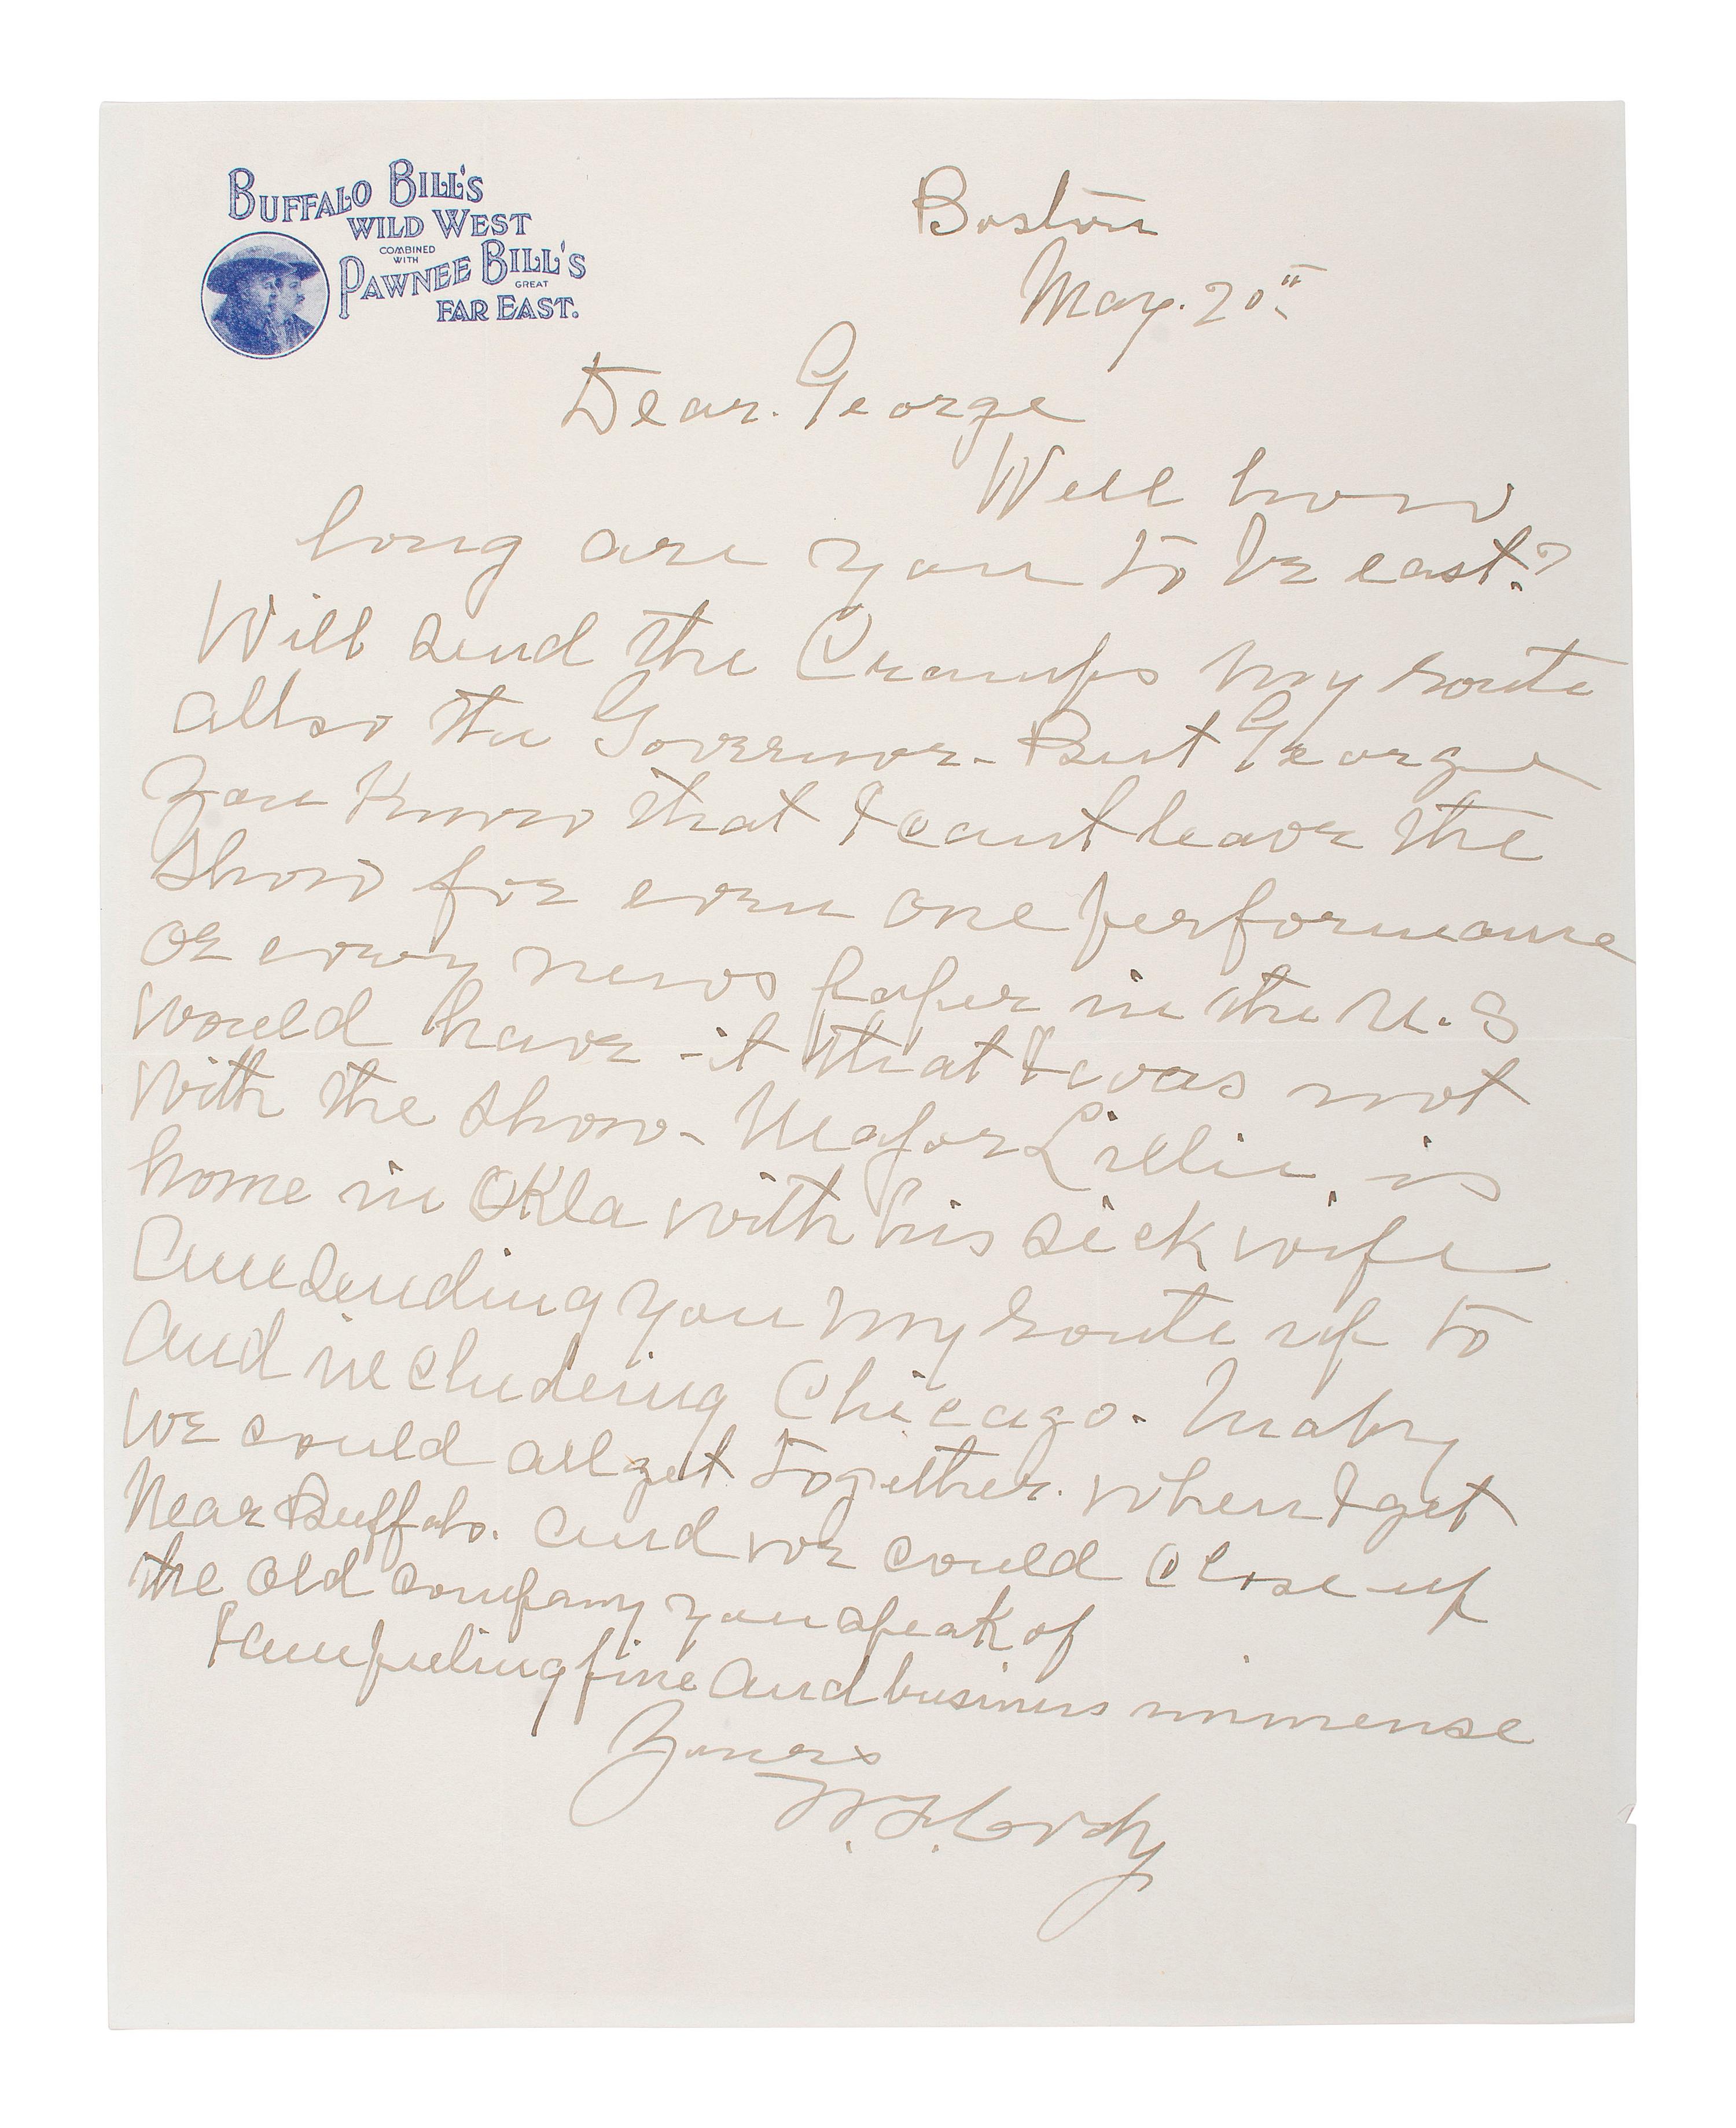 BUFFALO BILL'S
WILD WEST
COMBINED
WITH
PAWNEE BILL'S
GREAT
FAR EAST.
Boston
May. 20th
Dear. George
Well how
long are you to be east.?
Will send the Cramps my route
allso the Governor - But George
you Know that I cant leave the
Show for even one performance
or every news paper in the U.S
would have it that I was not
with the show - Major Lillie, is
home in Okla with his sick wife
Am sending you my route up to
and including Chicago. Maby
we could all get together. when I get
Near Buffalo. and we could close up
the old company you speak of
I am feeling fine and business immense
Yours
W. F. Cody